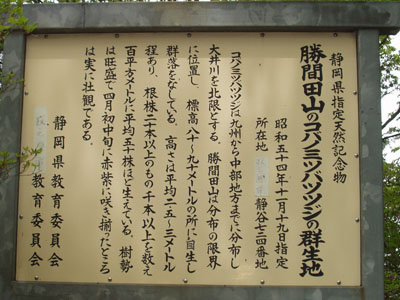 静岡県指定天然記念物
勝間田山のコバノミツバツツジの群生地
昭和五十四年十一月十九日指定
所在地 静谷七二四番地
コバノミツバツツジは九州から中部地方までに分布し
大井川を北限とする。勝間田山は分布の限界
に位置し、標高八十〜九十メートルの所に自生し
群落をなしている。高さは平均二・五〜三メートル
程あり、根株二本以上のもの千本以上を数え
百平方メートルに平均五十株ほど生えている。樹勢
は旺盛で四月初中旬に赤紫に咲き揃ったところ
は実に壮観である。
静岡県教育委員会
教育委員会